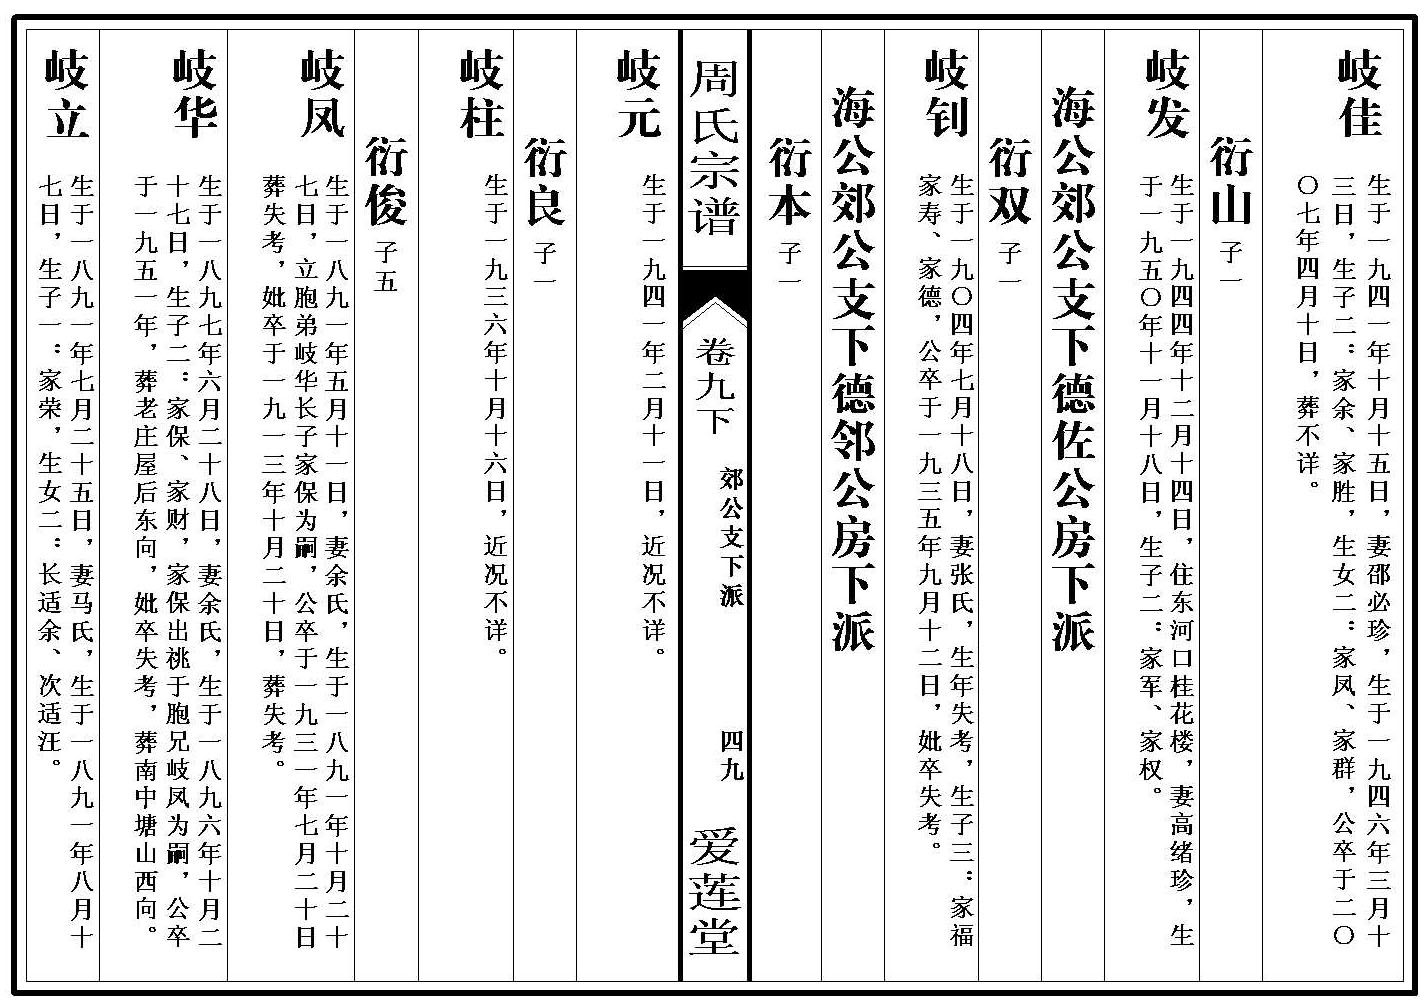 岐佳
生于一九四一年十月十五日，妻邵必珍，生于一九四六年三月十
三日，生子二：家余、家胜，生女二：家凤、家群，公卒于二〇
〇七年四月十日，葬不详。
衍山 子一
岐发
生于一九四四年十二月十四日，住东河口桂花楼，妻高绪珍，生
于一九五〇年十一月十八日，生子二：家军、家权。
海公郊公支下德佐公房下派
衍双 子一
岐钊
生于一九〇四年七月十八日，妻张氏，生年失考，生子三：家福
家寿、家德，公卒于一九三五年九月十二日，妣卒失考。
海公郊公支下德邻公房下派
衍本 子一
周氏宗谱
卷九下
郊公支下派
四九
爱莲堂
岐元
生于一九四一年二月十一日，近况不详。
衍良 子一
岐柱
生于一九三六年十月十六日，近况不详。
衍俊 子五
岐凤
生于一八九一年五月十一日，妻余氏，生于一八九一年十月二十
七日，立胞弟岐华长子家保为嗣，公卒于一九三一年七月二十日
葬失考，妣卒于一九一三年十月二十日，葬失考。
岐华
生于一八九七年六月二十八日，妻余氏，生于一八九六年十月二
十七日，生子二：家保、家财，家保出祧于胞兄岐凤为嗣，公卒
于一九五一年，葬老庄屋后东向，妣卒失考，葬南中塘山西向。
岐立
生于一八九一年七月二十五日，妻马氏，生于一八九一年八月十
七日，生子一：家荣，生女二：长适余、次适汪。